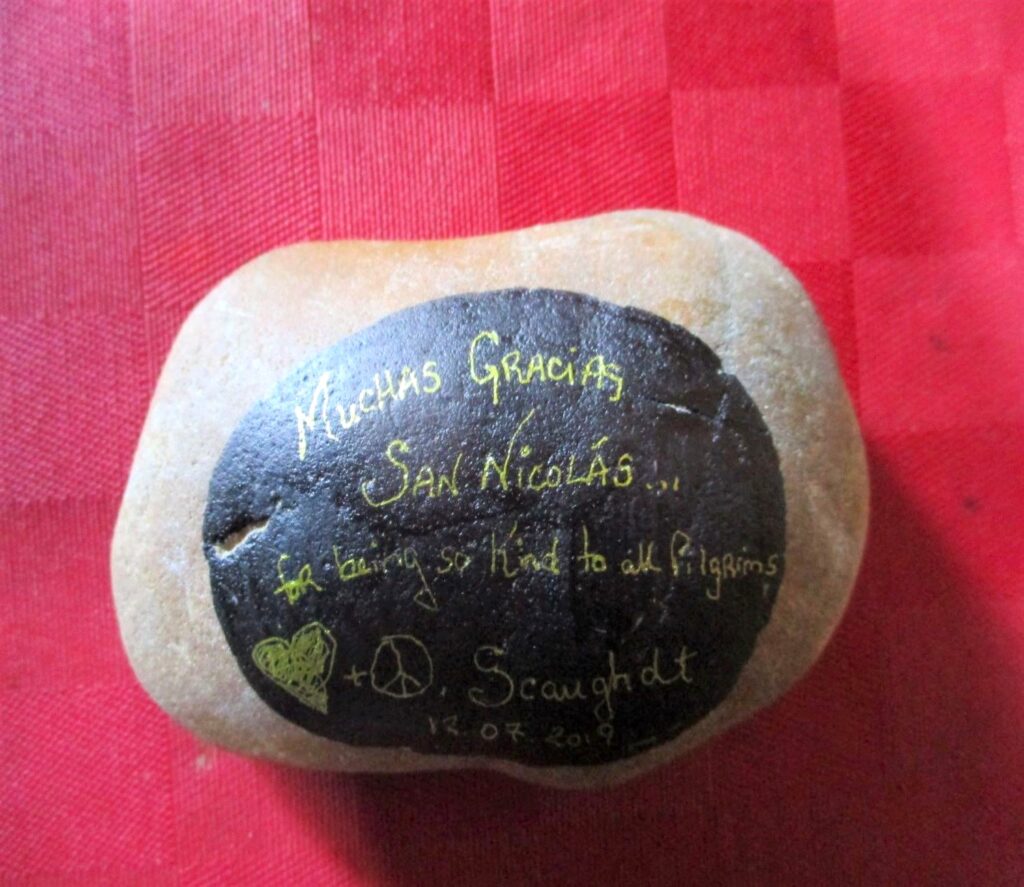 Muchas Gracias
San Nicolás...
for being so kind to all Pilgrims
+ . Scaughdt
12.07.2019